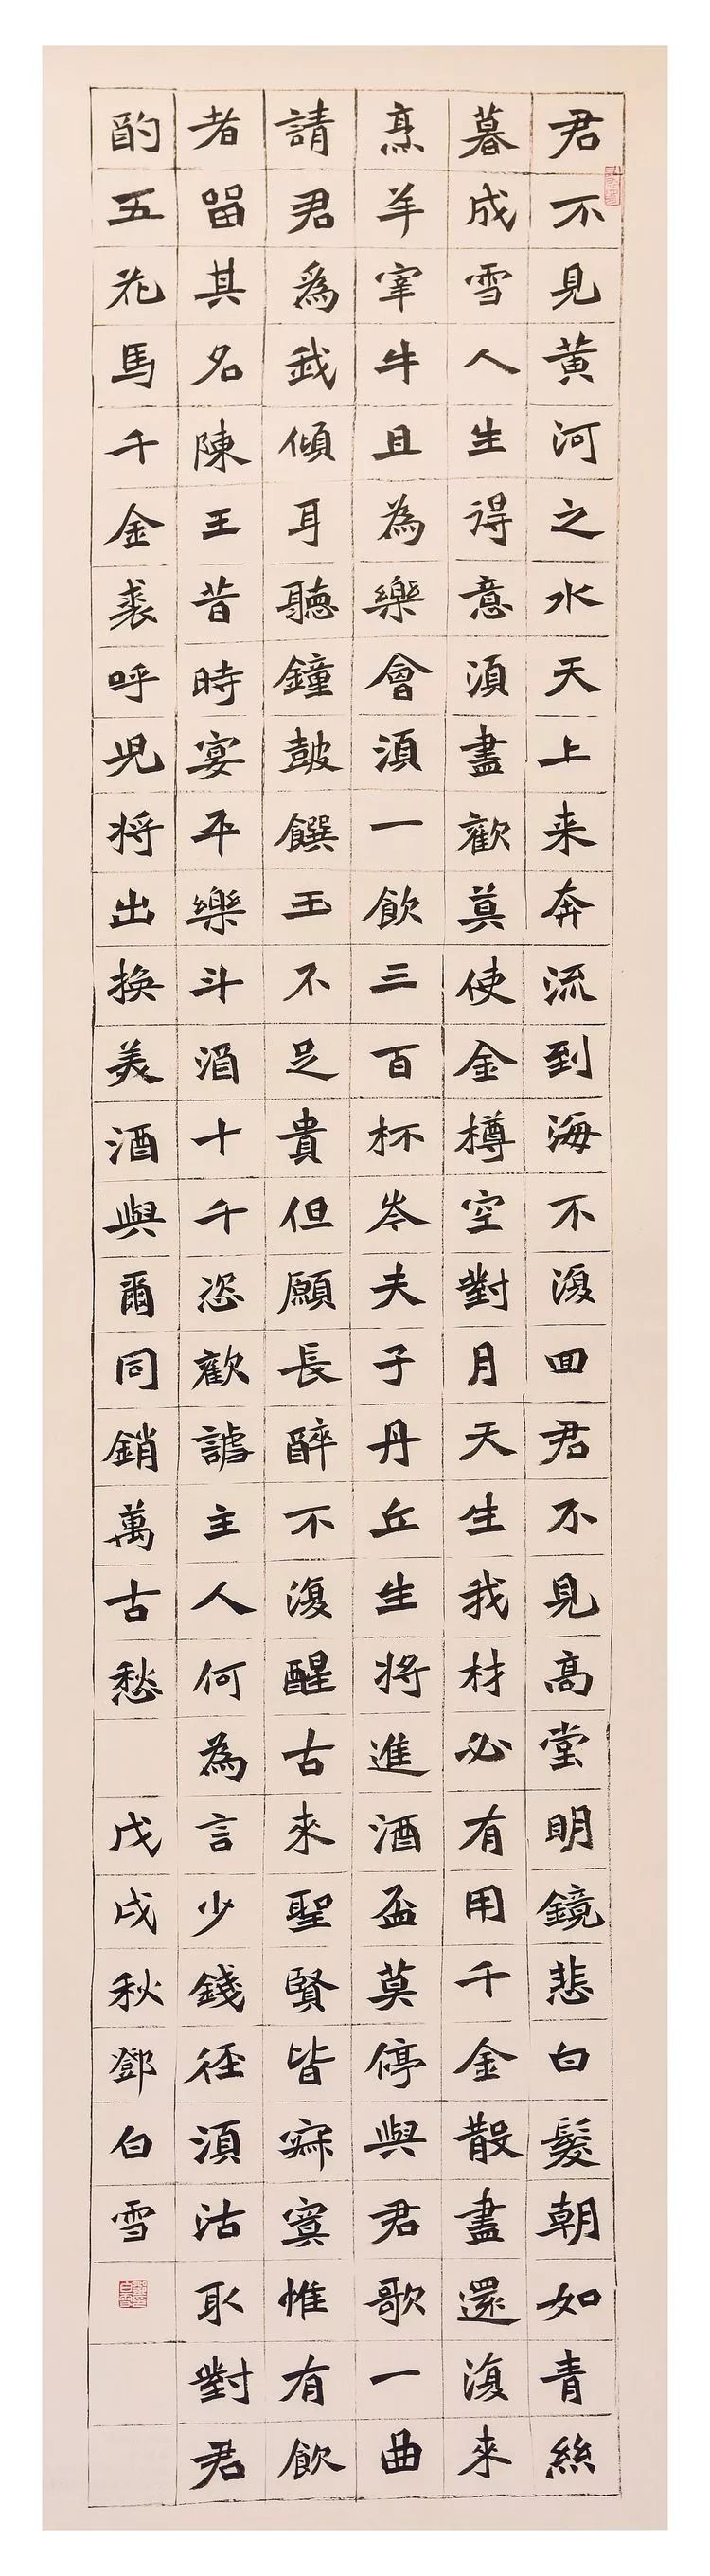 君不見黃河之水天上来奔流到海不澓回君不見高堂明鏡悲白髮朝如青絲
暮成雪人生得意湏盡歡莫使金樽空對月天生我材必有用千金散盡還澓來
烹羊宰牛且為樂會湏一飲三百杯岑夫子丹丘生将進酒盃莫停與君歌一曲
請君為我傾耳聽鐘鼓饌玉不足貴但願長醉不澓醒古來聖賢皆寂寞惟有飲
者留其名陳王昔時宴平樂斗酒十千恣歡謔主人何為言少錢徑湏沽取對君
酌五花馬千金裘呼児将出換美酒與爾同銷萬古愁 戊戌秋鄧白雪